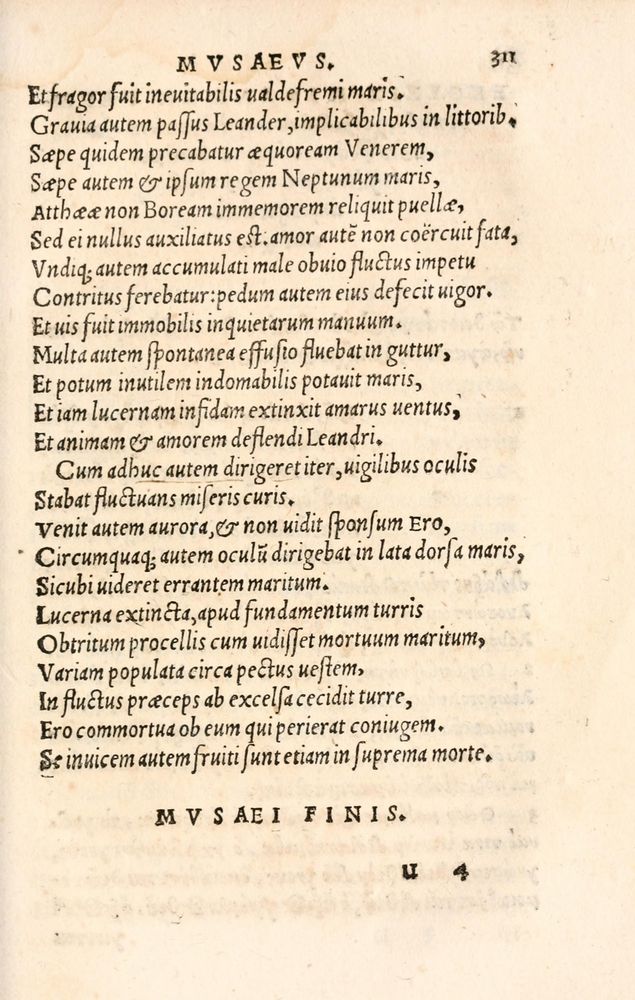 MVSAEVS. 311
Et fragor fuit ineuitabilis ualde fremi maris.
Grauia autem passus Leander, implicabilibus in littorib.
Sæpe quidem precabatur æquoream Venerem,
Sæpe autem & ipsum regem Neptunum maris,
Atthææ non Boream immemorem reliquit puellæ,
Sed ei nullus auxiliatus est. amor autẽ non coërcuit fata,
Vndiq; autem accumulati male obuio fluctus impetu
Contritus ferebatur: pedum autem eius defecit uigor.
Et uis fuit immobilis inquietarum manuum.
Multa autem spontanea effusio fluebat in guttur,
Et potum inutilem indomabilis potauit maris,
Et iam lucernam infidam extinxit amarus uentus,
Et animam & amorem deflendi Leandri.
Cum adhuc autem dirigeret iter, uigilibus oculis
Stabat fluctuans miseris curis.
Venit autem aurora, & non uidit sponsum Ero,
Circumquaq; autem oculũ dirigebat in lata dorsa maris,
Sicubi uideret errantem maritum.
Lucerna extincta, apud fundamentum turris
Obtritum procellis cum uidisset mortuum maritum,
Variam populata circa pectus uestem,
In fluctus præceps ab excelsa cecidit turre,
Ero commortua ob eum qui perierat coniugem.
Se inuicem autem fruiti sunt etiam in suprema morte.
MVSAEI FINIS.
u 4